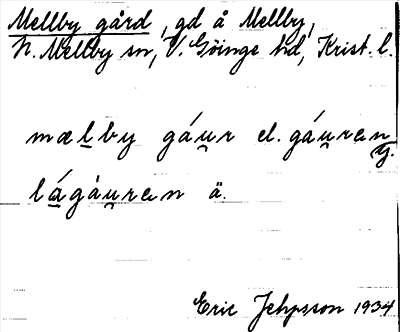 Mellby gård, gd å Mellby,
N. Mellby sn, V. Göinge hd, Krist. l.
mælby gáu̯r el. gáu̯ren y.
lágåu̯ren ä.
Eric Jehpsson 1934